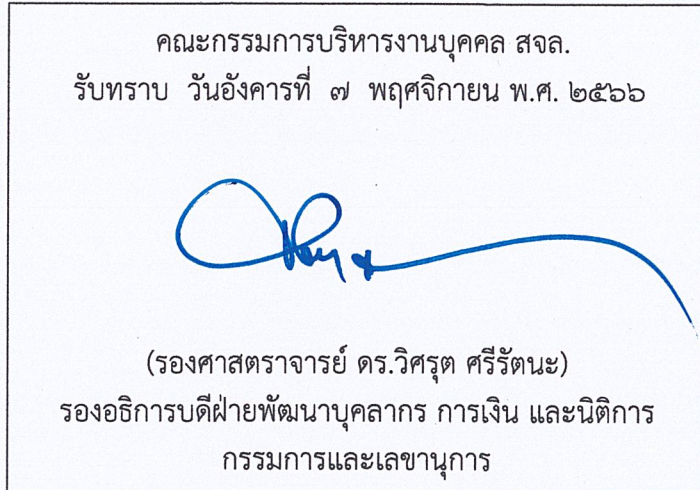 คณะกรรมการบริหารงานบุคคล สจล.
รับทราบ วันอังคารที่ ๗ พฤศจิกายน พ.ศ. ๒๕๖๖
(รองศาสตราจารย์ ดร.วิศรุต ศรีรัตนะ)
รองอธิการบดีฝ่ายพัฒนาบุคลากร การเงิน และนิติการ
กรรมการและเลขานุการ